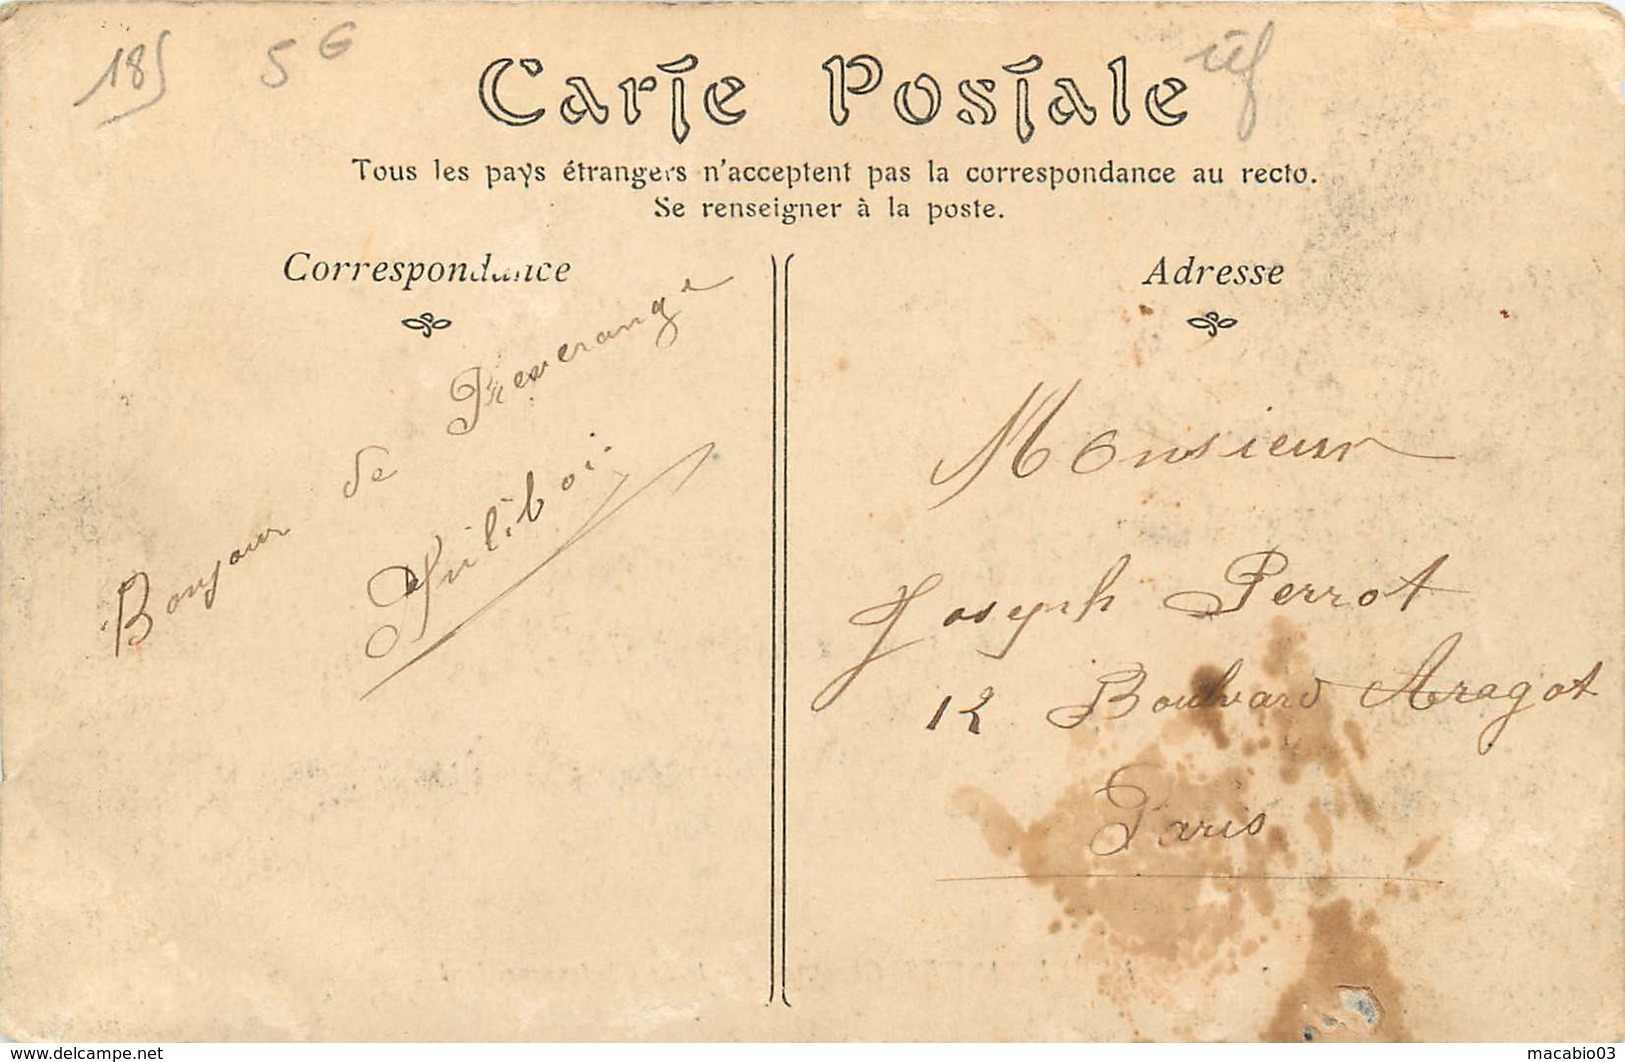 185 56
Carte Postale
Tous les pays étrangers n'acceptent pas la correspondance au recto.
Se renseigner à la poste.
Correspondance
Adresse
Bonjour de Freverange
Monsieur
Joseph Perrot
12 Boulvard Aragot
Paris
www.delcampe.net
macabio03